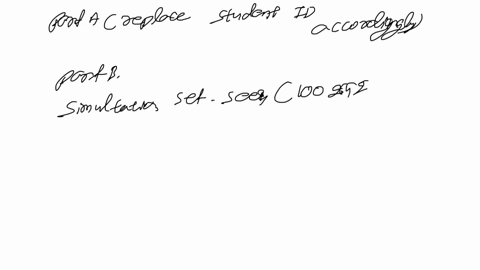 part A ( replace student ID accordingly)
part B.
simultation set. seed ( 100